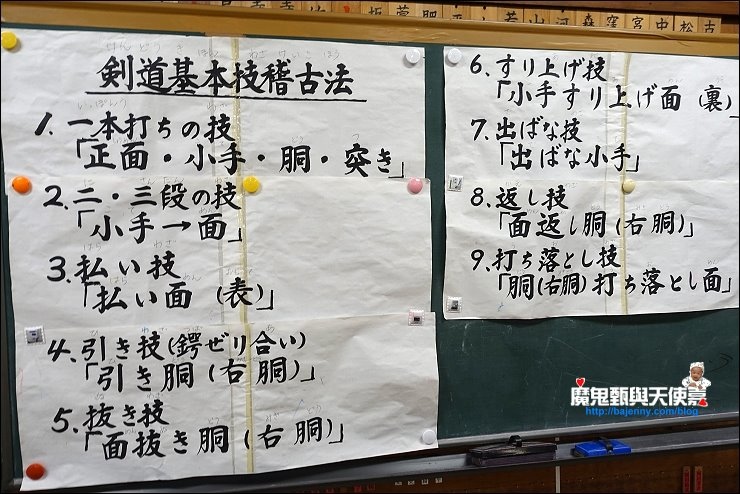 剣道基本技稽古法
1.一本打ちの技
「正面・小手・胴・突き」
2.二・三段の技
「小手→面」
3.払い技
「払い面(表)」
4.引き技(鍔ぜり合い)
「引き胴(右胴)」
5.抜き技
「面抜き胴(右胴)」
6.すり上げ技
「小手すり上げ面(裏)」
7.出ばな技
「出ばな小手」
8.返し技
「面返し胴(右胴)」
9.打ち落とし技
「胴(右胴)打ち落とし面」
魔鬼甄與天使嘉
http://bajenny.com/blog